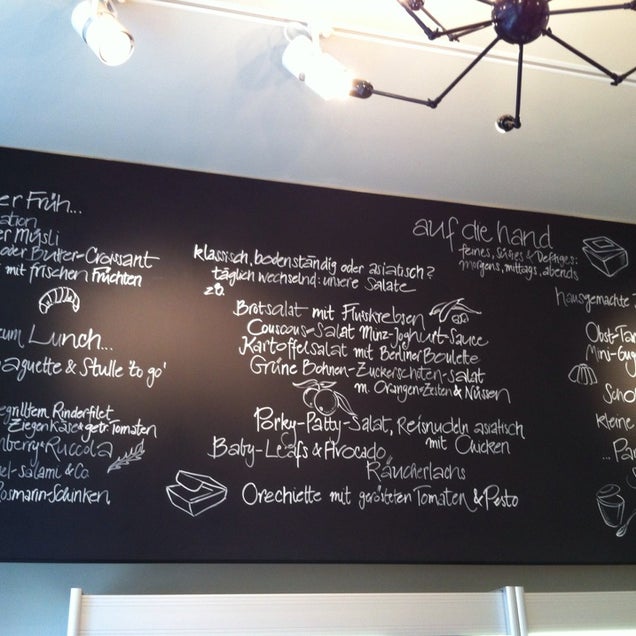 er Früh...
ation
er Müsli
oder Butter-Croissant
mit frischen Früchten
zum Lunch...
aguette & Stulle 'to go'
egrilltem Rinderfilet
Ziegenkäse & getr. Tomaten
nberry & Ruccola
el-Salami & Co.
Rosmarin-Schinken
auf die hand
feines, Süßes & Deftiges:
morgens, mittags, abends
klassisch, bodenständig oder asiatisch?
täglich wechselnd: unsere Salate
z.B.
Brotsalat mit Flusskrebsen
Couscous-Salat Minz-Joghurt-Sauce
Kartoffelsalat mit Berliner Boulette
Grüne Bohnen-Zuckerschoten-Salat
m. Orangenzesten & Nüssen
Porky-Patty-Salat, Reisnudeln asiatisch
mit Chicken
Baby-Leafs & Avocado
Räucherlachs
Orechiette mit gerösteten Tomaten & Pesto
hausgemachte
Obst-Tar
Mini-Gug
Scho
kleine
...Pa